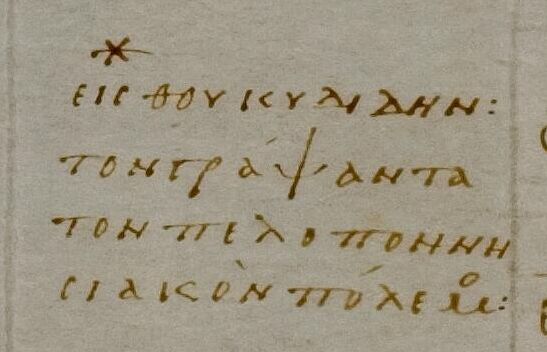 ※
εις θουκυδιδην:
τον γρά ψαντα
τον πελοποννη
σιακὸν πόλεμο: